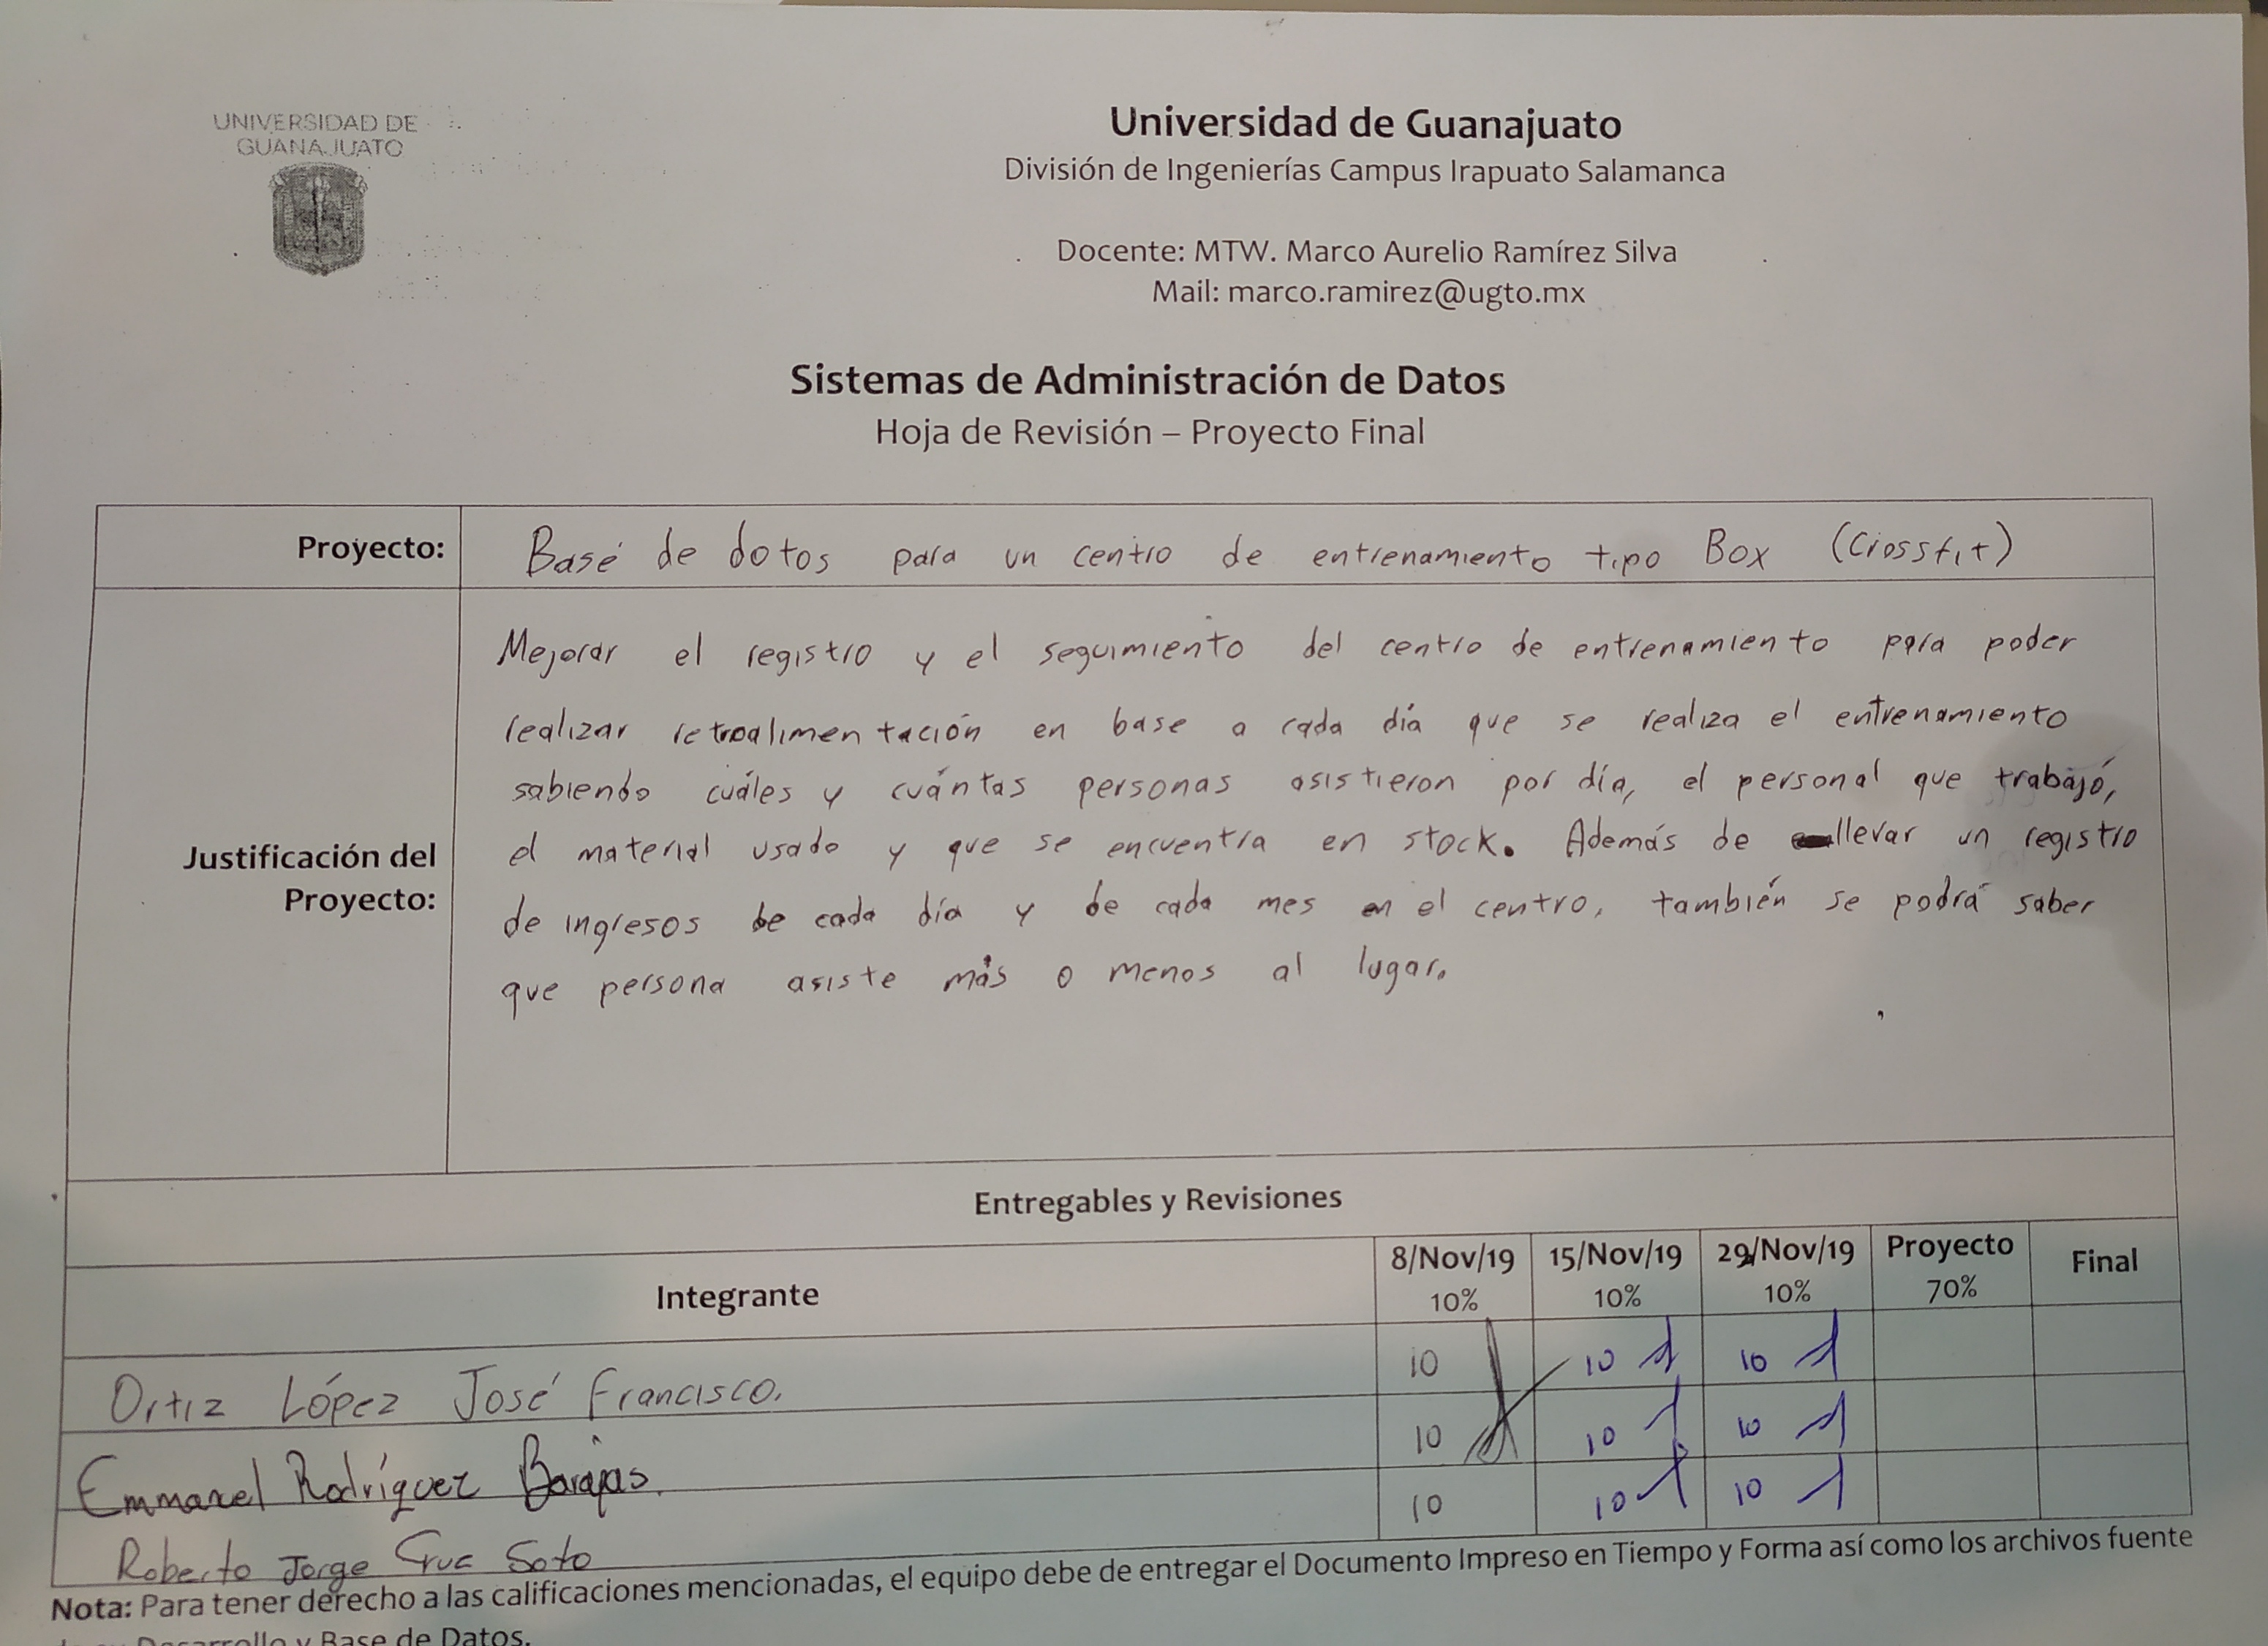 UNIVERSIDAD DE
GUANAJUATO
Universidad de Guanajuato
División de Ingenierías Campus Irapuato Salamanca
Docente: MTW. Marco Aurelio Ramírez Silva
Mail: marco.ramirez@ugto.mx
Sistemas de Administración de Datos
Hoja de Revisión – Proyecto Final
Proyecto: Base de datos para un centro de entrenamiento tipo Box (Crossfit)
Justificación del Proyecto:
Mejorar el registro y el seguimiento del centro de entrenamiento para poder
realizar retroalimentación en base a cada día que se realiza el entrenamiento
sabiendo cuáles y cuántas personas asistieron por día, el personal que trabajó,
el material usado y que se encuentra en stock. Además de llevar un registro
de ingresos de cada día y de cada mes en el centro, también se podrá saber
que persona asiste más o menos al lugar.
Entregables y Revisiones
Integrante 8/Nov/19 10% 15/Nov/19 10% 29/Nov/19 10% Proyecto 70% Final
Ortiz López José Francisco. 10 10 10
Emmanuel Rodríguez Barajas. 10 10 10
Roberto Jorge Cruz Soto 10 10 10
Nota: Para tener derecho a las calificaciones mencionadas, el equipo debe de entregar el Documento Impreso en Tiempo y Forma así como los archivos fuente
de su Desarrollo y Base de Datos.